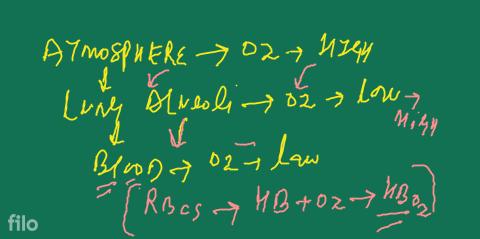 ATMOSPHERE → O2 → HIGH
Lung Alveoli → O2 → Low → HIGH
Blood → O2 → Low
[RBCs → HB + O2 → HBO2]
filo